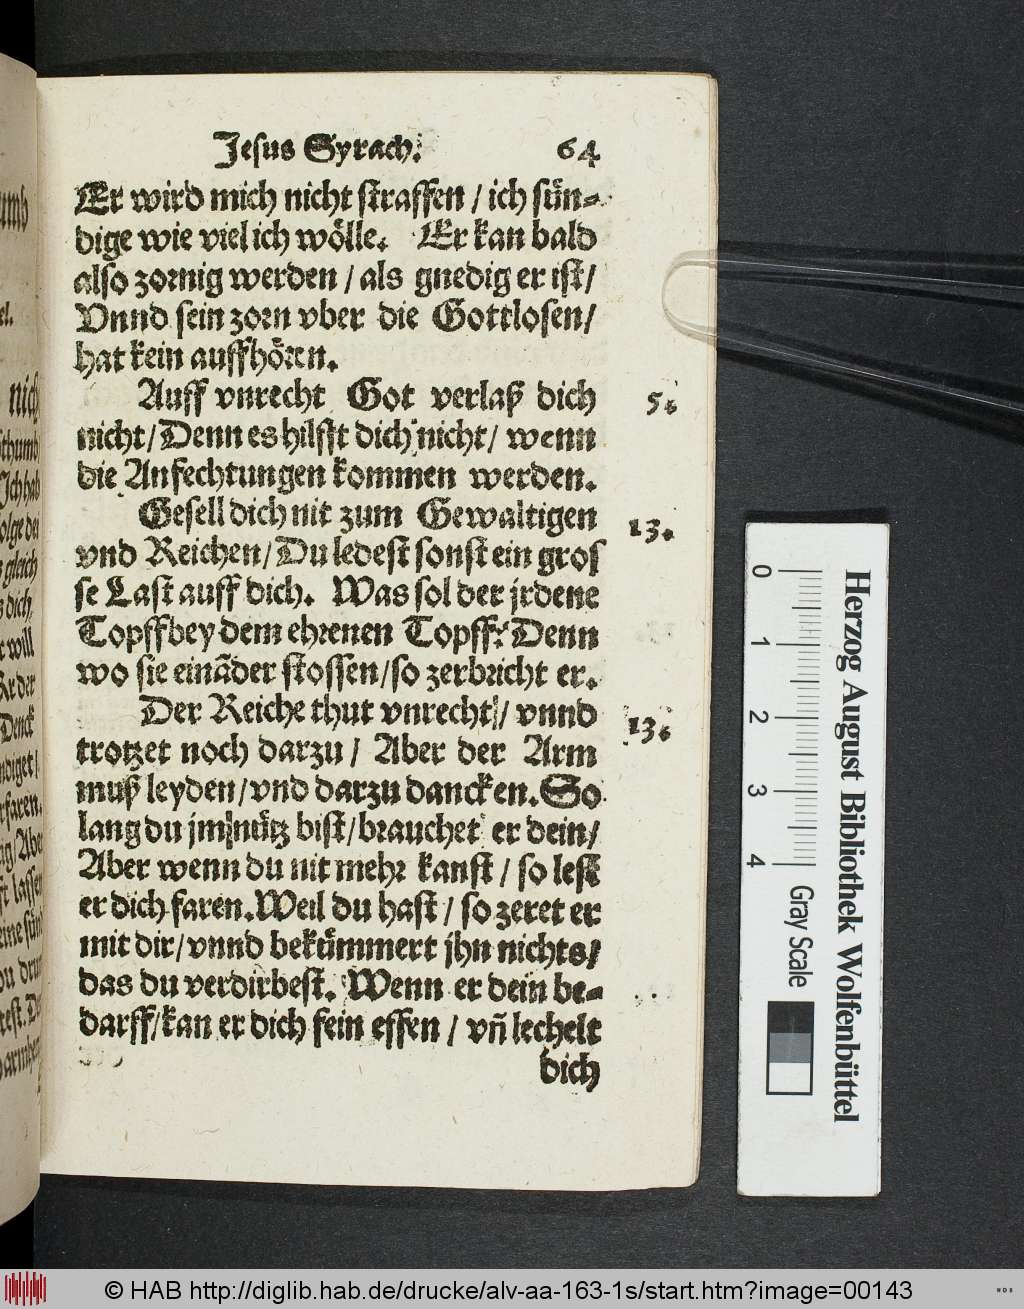 Jesus Syrach. 64
Er wird mich nicht straffen / ich sün-
dige wie viel ich wölle. Er kan bald
also zornig werden / als gnedig er ist /
Vnnd sein zorn vber die Gottlosen /
hat kein auffhören.
Auff vnrecht Got verlaß dich 5.
nicht / Denn es hilfft dich nicht / wenn
die Anfechtungen kommen werden.
Gesell dich nit zum Gewaltigen 13.
vnd Reichen / Du ledest sonst ein gros
se Last auff dich. Was sol der jrdene
Topff bey dem ehrenen Topff? Denn
wo sie einãder stossen / so zerbricht er.
Der Reiche thut vnrecht / vnnd 13.
trotzet noch darzu / Aber der Arm
muß leyden / vnd darzu dancken. So
lang du jm nütz bist / brauchet er dein /
Aber wenn du nit mehr kanst / so lest
er dich faren. Weil du hast / so zeret er
mit dir / vnnd bekümmert jhn nichts /
das du verdirbest. Wenn er dein be-
darff / kan er dich fein effen / vñ lechelt
dich
umb
el.
nich
Ich hab
gleich
dich
will
Denck
ndiget /
rfaren.
Aber
lassen
0 1 2 3 4
Gray Scale
Herzog August Bibliothek Wolfenbüttel
© HAB http://diglib.hab.de/drucke/alv-aa-163-1s/start.htm?image=00143